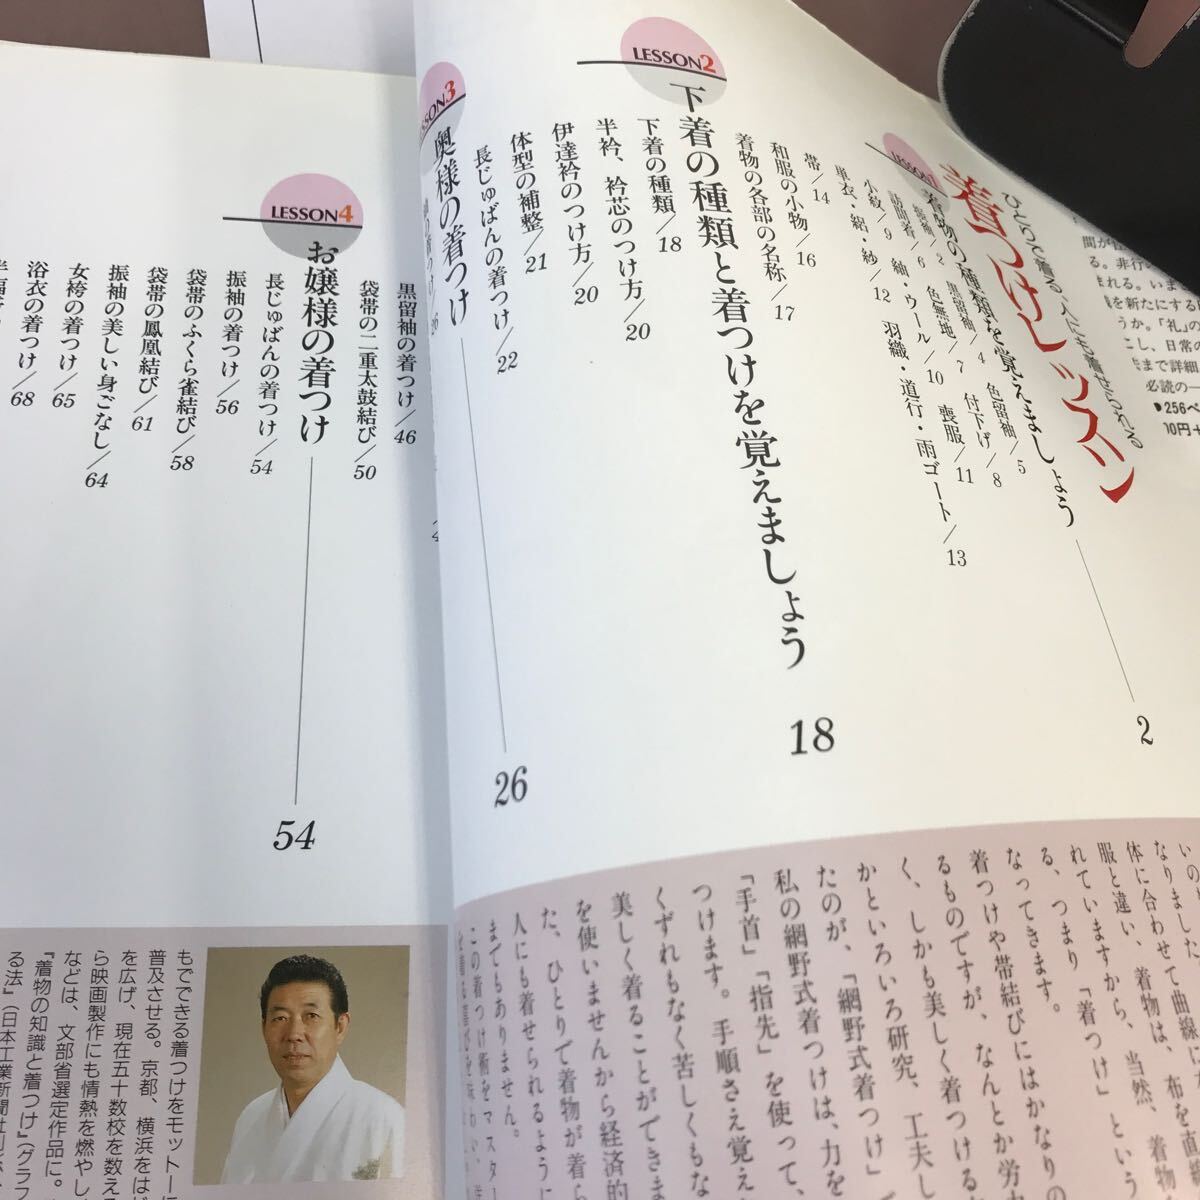 着つけレッスン
ひとりで着る 人にも着せられる
LESSON1
着物の種類を覚えましょう
2
振袖/2 黒留袖/4 色留袖/5
訪問着/6 色無地/7 付下げ/8
小紋/9 紬・ウール/10 喪服/11
単衣・絽・紗/12 羽織・道行・雨ゴート/13
帯/14
和服の小物/16
着物の各部の名称/17
LESSON2
下着の種類と着つけを覚えましょう
18
下着の種類/18
半衿、衿芯のつけ方/20
伊達衿のつけ方/20
体型の補整/21
長じゅばんの着つけ/22
LESSON3
奥様の着つけ
26
黒留袖の着つけ/46
袋帯の二重太鼓結び/50
LESSON4
お嬢様の着つけ
54
長じゅばんの着つけ/54
振袖の着つけ/56
袋帯のふくら雀結び/58
袋帯の鳳凰結び/61
振袖の美しい身ごなし/64
女袴の着つけ/65
浴衣の着つけ/68
る。非行
まれる。いま
を新たにする
うか。「礼」の
こし、日常の
まで詳細
必読の一
●256ペ
10円+
いのた
なりました。
体に合わせて曲線に
服と違い、着物は、布を直
れていますから、当然、着物
る、つまり「着つけ」という
なってきます。
着つけや帯結びにはかなりの
るものですが、なんとか労
く、しかも美しく着つける
かといろいろ研究、工夫し
たのが、「網野式着つけ」で
私の網野式着つけは、力を
「手首」「指先」を使って、
つけます。手順さえ覚え
くずれもなく苦しくもな
美しく着ることができま
を使いませんから経済的
た、ひとりで着物が着ら
人にも着せられるように
までもありません。
この着つけ術をマスター
もでできる着つけをモットーに
普及させる。京都、横浜をはじ
を広げ、現在五十数校を数える
ら映画製作にも情熱を燃やし
などは、文部省選定作品に。
『着物の知識と着つけ』(グラフ
る法』(日本工業新聞社